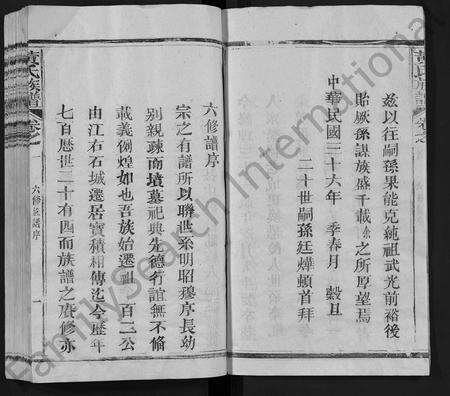 黃氏族譜
茲以往嗣孫果能克繩祖武光前裕後
貽厥孫謀族盛千載余之所厚望焉
中華民國三十六年 季春月 穀旦
二十世嗣孫廷燁頓首拜
六修譜序
宗之有譜所以聯世系明昭穆序長幼
別親疎而墳墓祀典先德行誼無不備
載義例煌如也吾族始遷祖百二公
由江右石城遷居寶積相傳迄今歷年
七百歷世二十有四而族譜之賡修亦
黃氏族譜 卷之一 六修族譜序 一
FamilySearch International